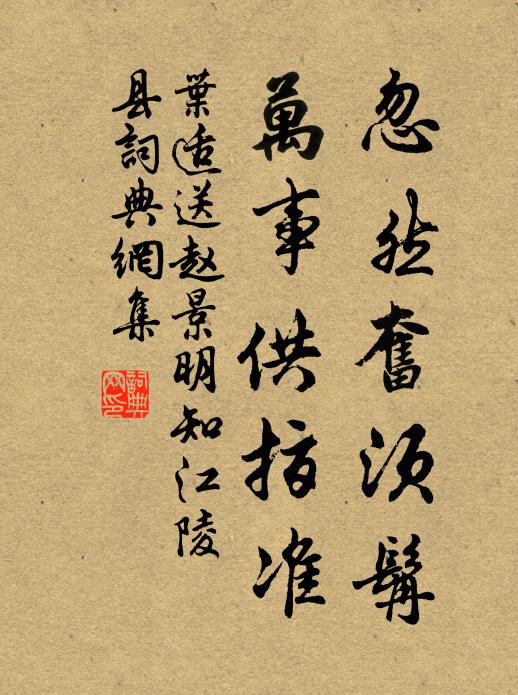 忽然奮須髯
萬事供指准
葉适送赵景明知江陵
县詞典網集
詞典網印